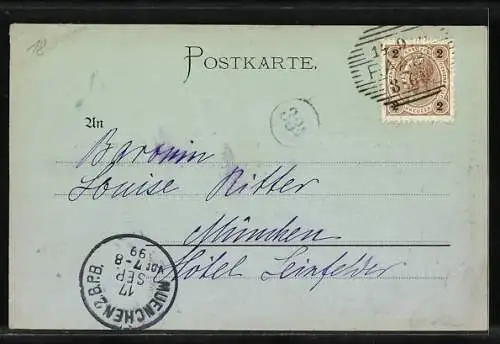 POSTKARTE.
2 2
An
Baronin
Louise Ritter
München
Hôtel Leinfelder
MUENCHEN 2 B.P.B.
17
SEP.
Vor 7-8
99